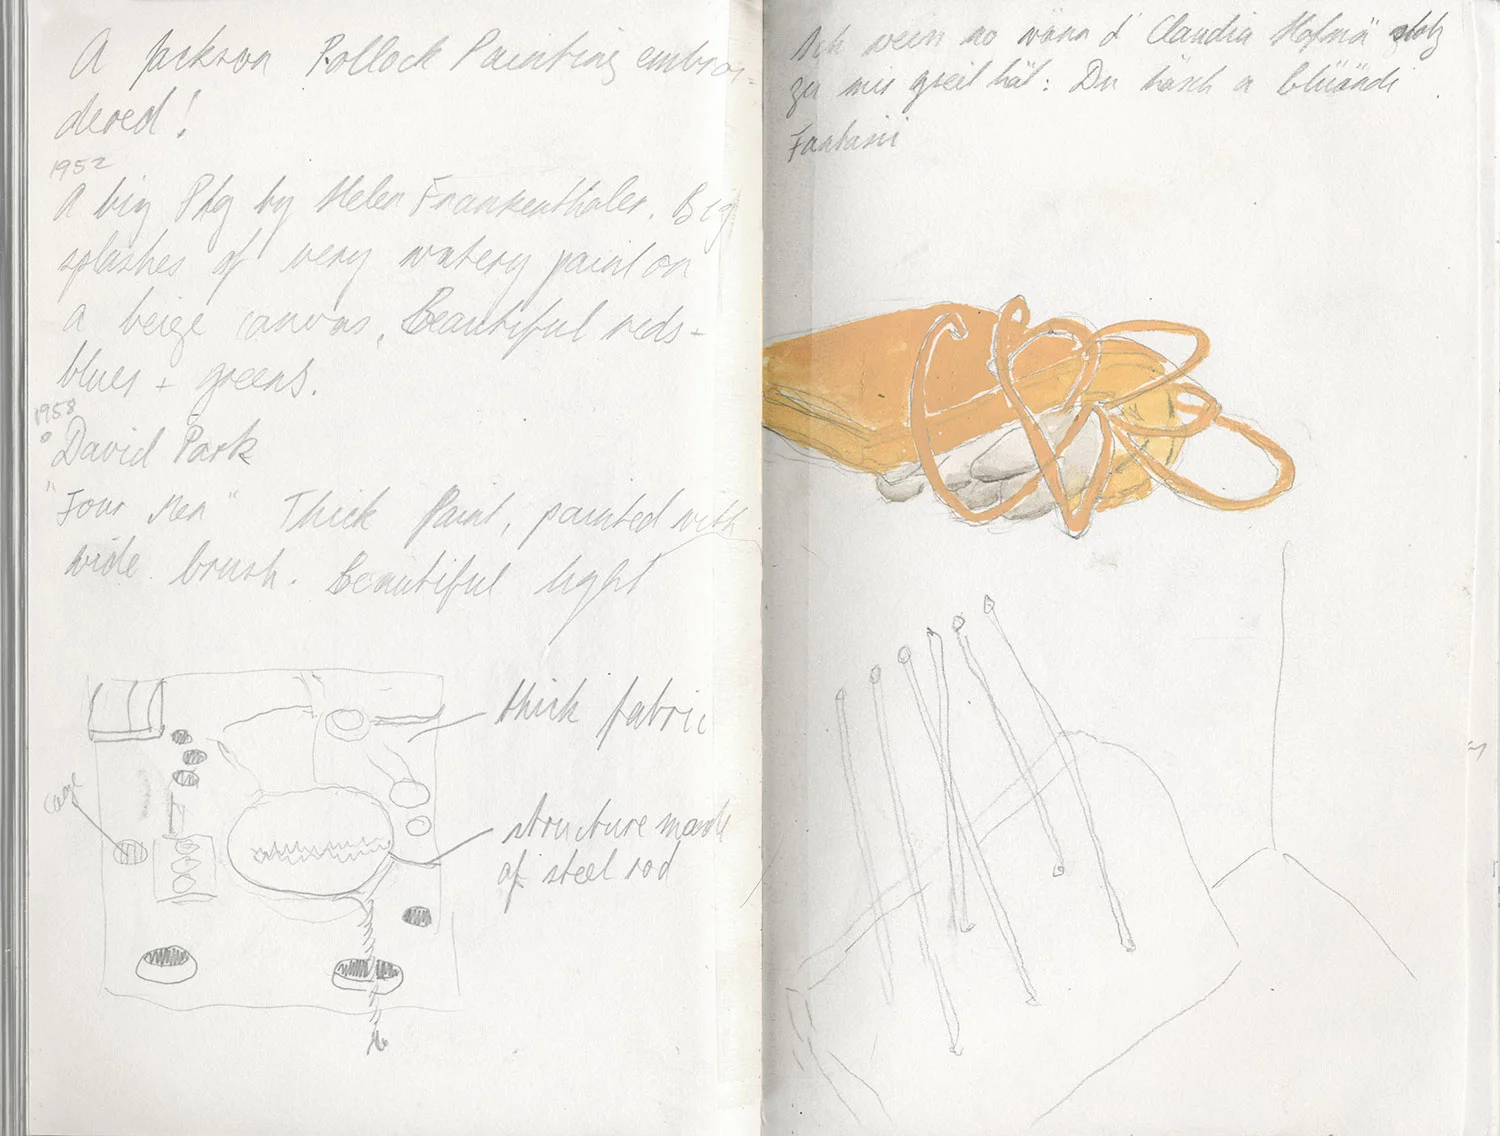 A Jackson Pollock Painting embroi-
dered!
1952
A big Ptg by Helen Frankenthaler. Big
splashes of very watery paint on
a beige canvas. Beautiful reds -
blues + greens.
1958
David Park
"Four Men" Thick Paint, painted with
wide brush. Beautiful light
thick fabric
cage
structure made
of steel rod
Ich weis no wänn d' Claudia Hofmä
zu mis gseit hät: Du häsch a blüändi
Fantasii